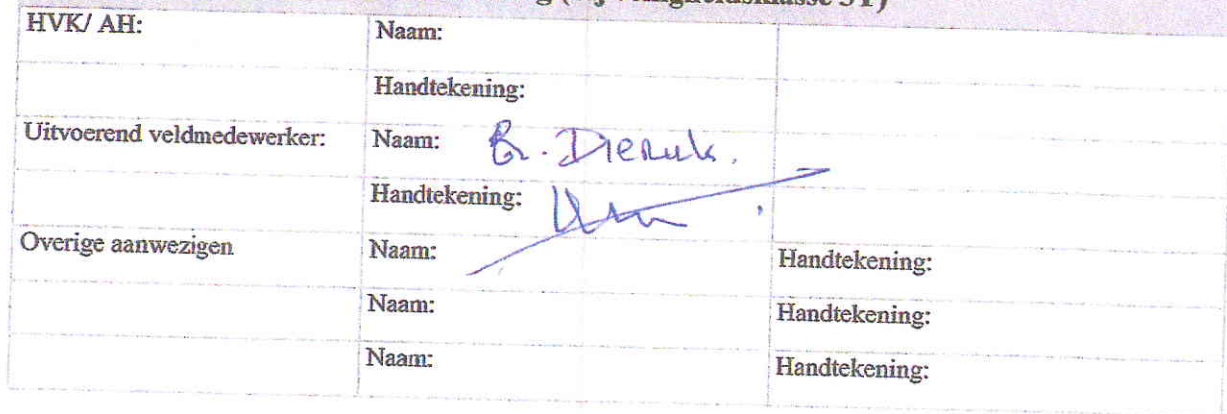 HVK/ AH: Naam:
Handtekening:
Uitvoerend veldmedewerker: Naam:
Handtekening:
Overige aanwezigen Naam: Handtekening:
Naam: Handtekening:
Naam: Handtekening: